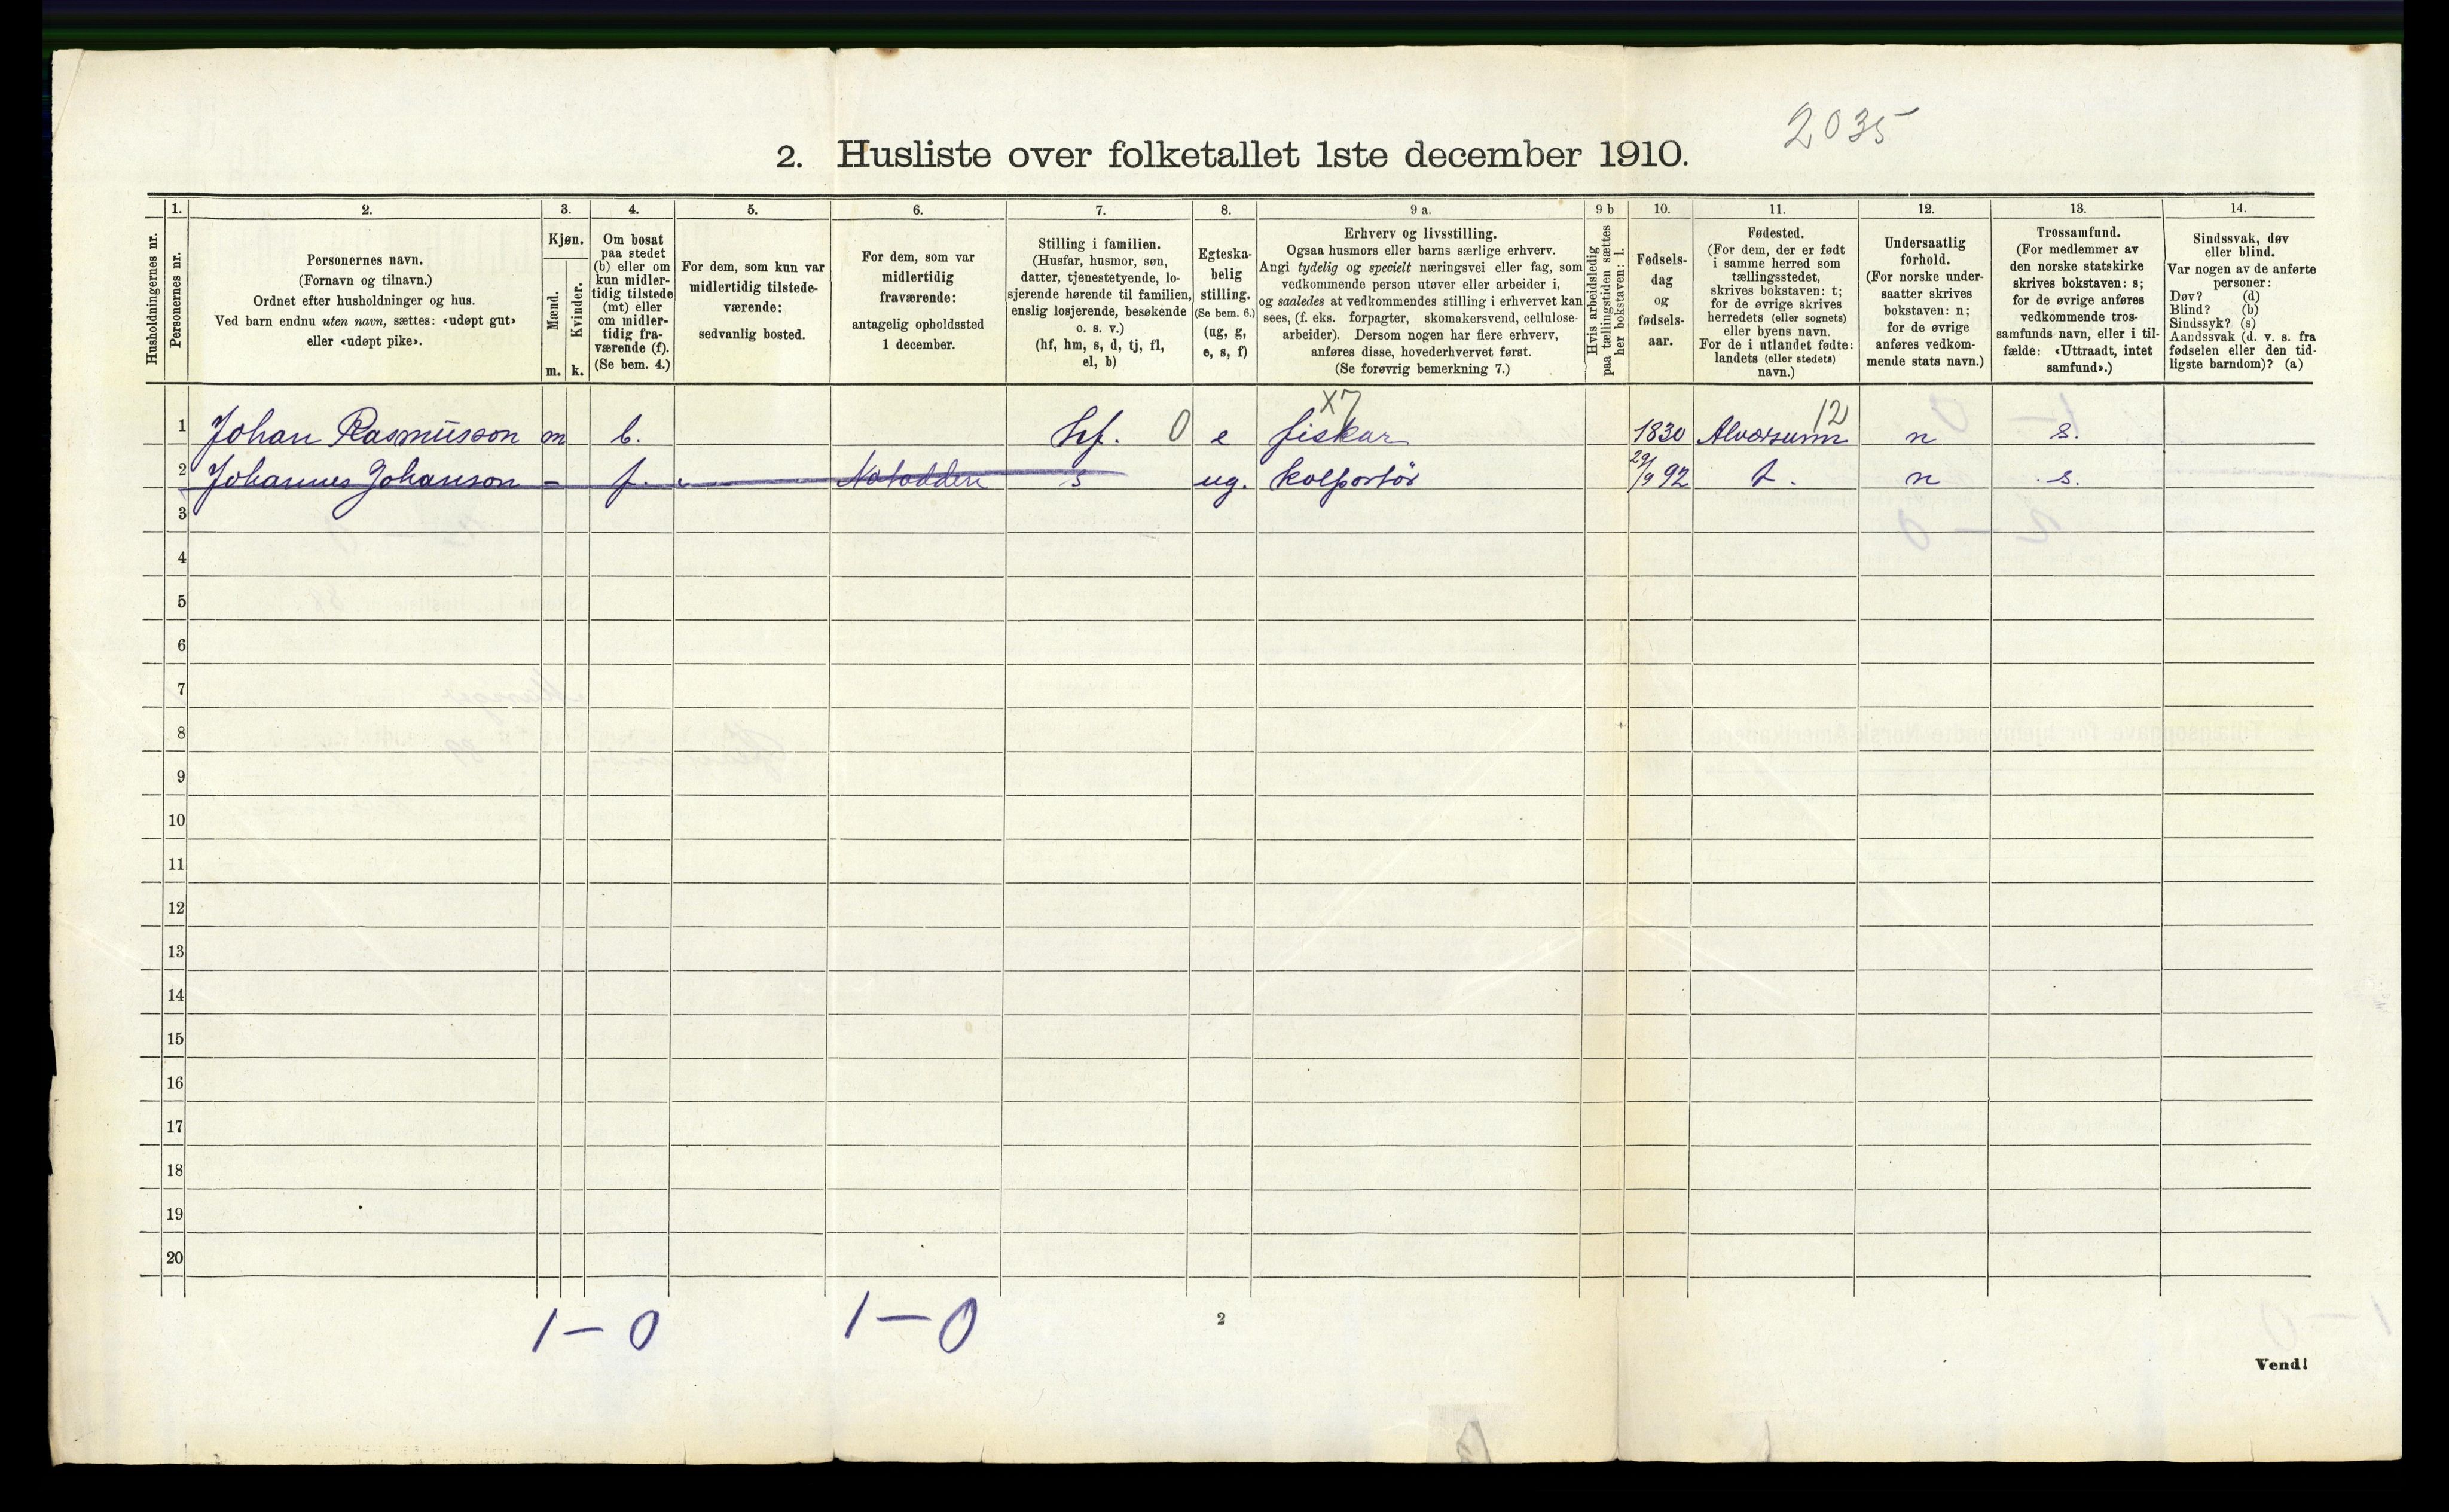 2035
2. Husliste over folketallet 1ste december 1910.
Husholdningernes nr.
1.
Personernes nr.
2.
Personernes navn.
(Fornavn og tilnavn.)
Ordnet efter husholdninger og hus.
Ved barn endnu uten navn, sættes: «udøpt gut»
eller «udøpt pike».
3.
Kjøn.
Mænd.
Kvinder.
m. k.
4.
Om bosat
paa stedet
(b) eller om
kun midler-
tidig tilstede
(mt) eller
om midler-
tidig fra-
værende (f).
(Se bem. 4.)
5.
For dem, som kun var
midlertidig tilstede-
værende:
sedvanlig bosted.
6.
For dem, som var
midlertidig
fraværende:
antagelig opholdssted
1 december.
7.
Stilling i familien.
(Husfar, husmor, søn,
datter, tjenestetyende, lo-
sjerende hørende til familien,
enslig losjerende, besøkende
o. s. v.)
(hf, hm, s, d, tj, fl,
el, b)
8.
Egteska-
belig
stilling.
(Se bem. 6.)
(ug, g,
e, s, f)
9 a.
Erhverv og livsstilling.
Ogsaa husmors eller barns særlige erhverv.
Angi tydelig og specielt næringsvei eller fag, som
vedkommende person utøver eller arbeider i,
og saaledes at vedkommendes stilling i erhvervet kan
sees, (f. eks. forpagter, skomakersvend, cellulose-
arbeider). Dersom nogen har flere erhverv,
anføres disse, hovederhvervet først.
(Se forøvrig bemerkning 7.)
9 b
Hvis arbeidsledig
paa tællingstiden sættes
her bokstaven: l.
10.
Fødsels-
dag
og
fødsels-
aar.
11.
Fødested.
(For dem, der er født
i samme herred som
tællingsstedet,
skrives bokstaven: t;
for de øvrige skrives
herredets (eller sognets)
eller byens navn.
For de i utlandet fødte:
landets (eller stedets)
navn.)
12.
Undersaatlig
forhold.
(For norske under-
saatter skrives
bokstaven: n;
for de øvrige
anføres vedkom-
mende stats navn.)
13.
Trossamfund.
(For medlemmer av
den norske statskirke
skrives bokstaven: s;
for de øvrige anføres
vedkommende tros-
samfunds navn, eller i til-
fælde: «Uttraadt, intet
samfund».)
14.
Sindssvak, døv
eller blind.
Var nogen av de anførte
personer:
Døv? (d)
Blind? (b)
Sindssyk? (s)
Aandssvak (d. v. s. fra
fødselen eller den tid-
ligste barndom)? (a)
x7 12
1 Johan Rasmusson m b. hf. 0 e fiskar 1830 Alværsunn n s.
2 Johannes Johanson - f. Notodden s ug. kolportør 29/9 92 t. n s.
3
4
5
6
7
8
9
10
11
12
13
14
15
16
17
18
19
20
1 – 0 1 – 0
2
Vend!